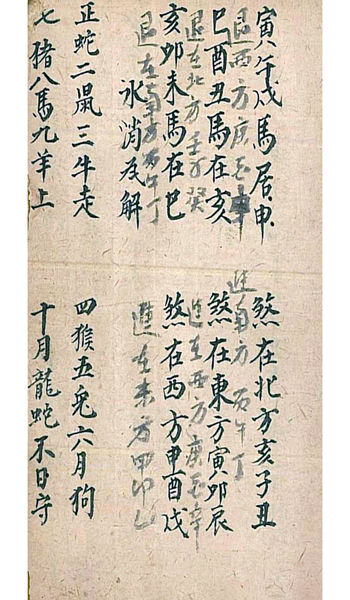 寅八午戌馬居申 煞在北方亥子丑
退西方庚酉辛 進南方丙午丁
巳酉丑馬在亥 煞在東方寅卯辰
退在北方壬子癸 進在西方庚酉辛
亥卯未馬在巳 煞在西方申酉戌
退在南方丙午丁 進在東方甲卯乙
氷消及解
正蛇二鼠三牛走 四猴五兔六月狗
七猪八馬九羊上 十月龍蛇不日守